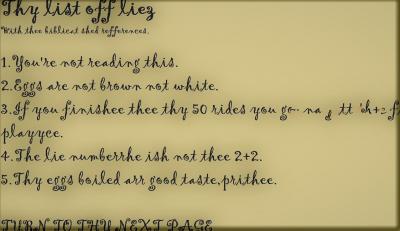 Thy list off liez
With thee biblicat shed refferences.
1.You're not reading this.
2.Eggs are not brown not white.
3.If you finishee thee thy 50 rides you go
playyce.
4.The lie numberrhe ish not thee 2+2.
5.Thy eggs boiled arr good taste,prithee.
TURN TO THY NEXT PAGE